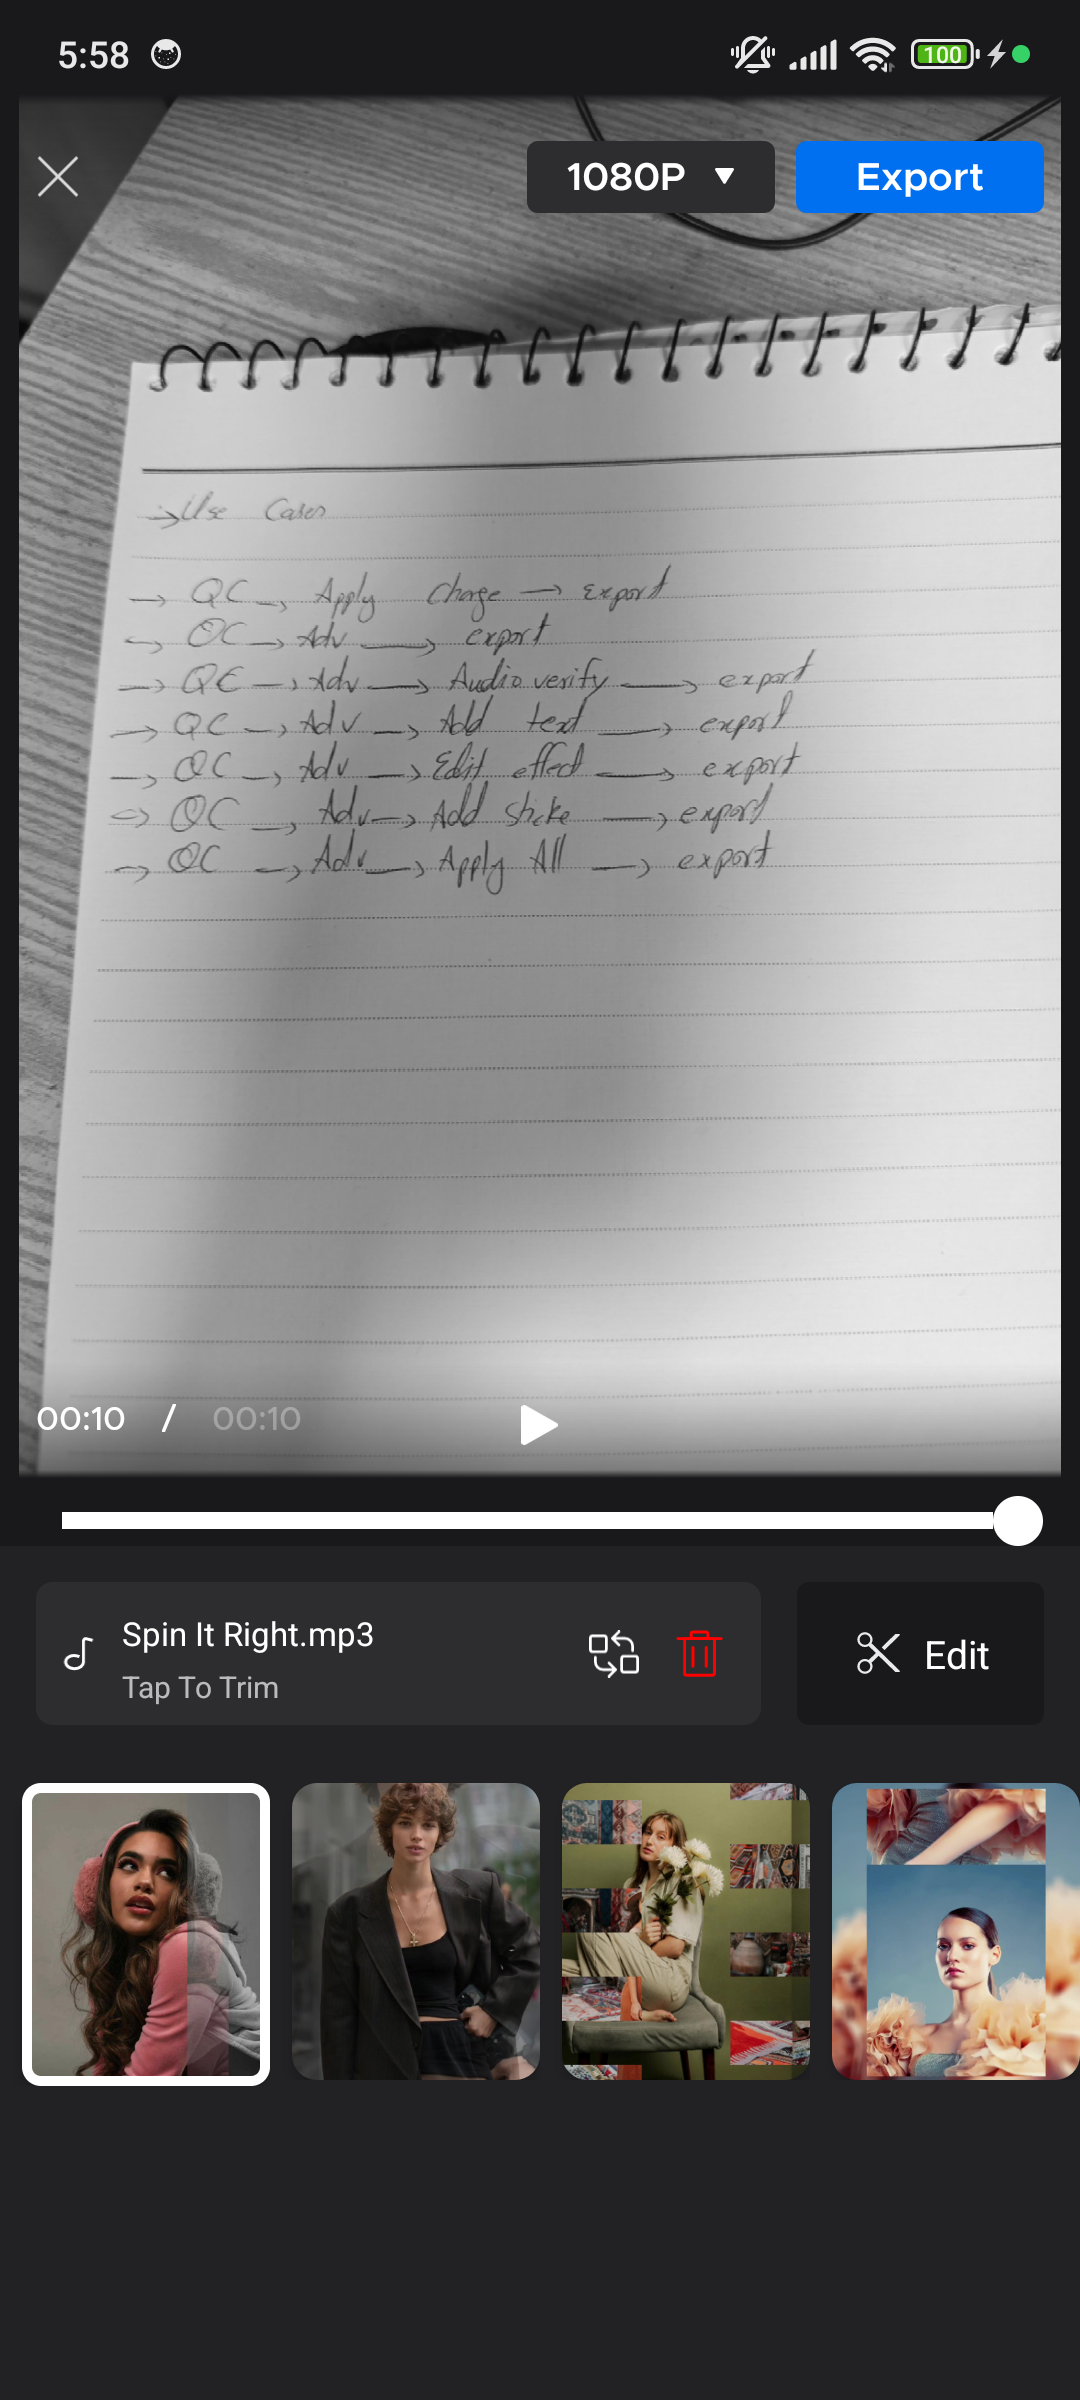 5:58
100
1080P
Export
→ Use Cases
→ QC → Apply Change → Export
→ QC → Adv → export
→ QC → Adv → Audio verify → export
→ QC → Adv → Add text → export
→ QC → Adv → Edit effect → export
→ QC → Adv → Add sticke → export
→ QC → Adv → Apply All → export
00:10 / 00:10
Spin It Right.mp3
Tap To Trim
Edit